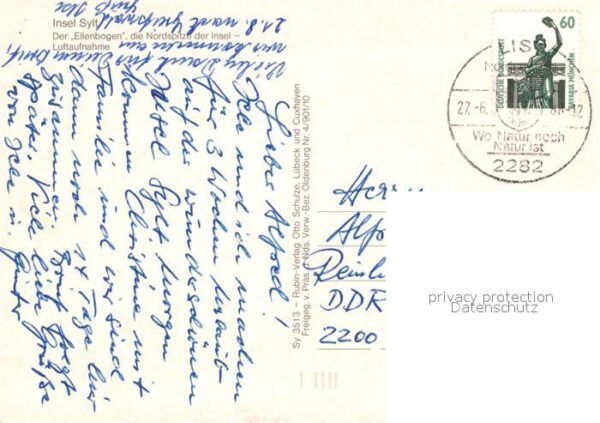 Insel Sylt
Der „Ellenbogen”, die Nordspitze der Insel –
Luftaufnahme
Vielen Dank für Deinen Brief,
wir kommen am
21.8. nach Greifswald
Lieber Alfred!
Ilse und ich machen
für 3 Wochen Urlaub
auf der wunderschönen
Insel Sylt. Morgen
kommen Christine mit
Familie und wir sind
dann noch 14 Tage hier
zusammen. Brief folgt
später. Viele liebe Grüße
von Ilse u. Günter
Sy 3513 – Rubin-Verlag Otto Schulze, Lübeck und Cuxhaven
Freigeg. v. Präs. d. Nds. Verw.-Bez. Oldenburg Nr. 4/901/10
60
DEUTSCHE BUNDESPOST
BAVARIA MÜNCHEN
LIS
27.-6.
-12
Wo Natur noch
Natur ist
2282
Herrn
Alfr
DDR
2200
privacy protection
Datenschutz